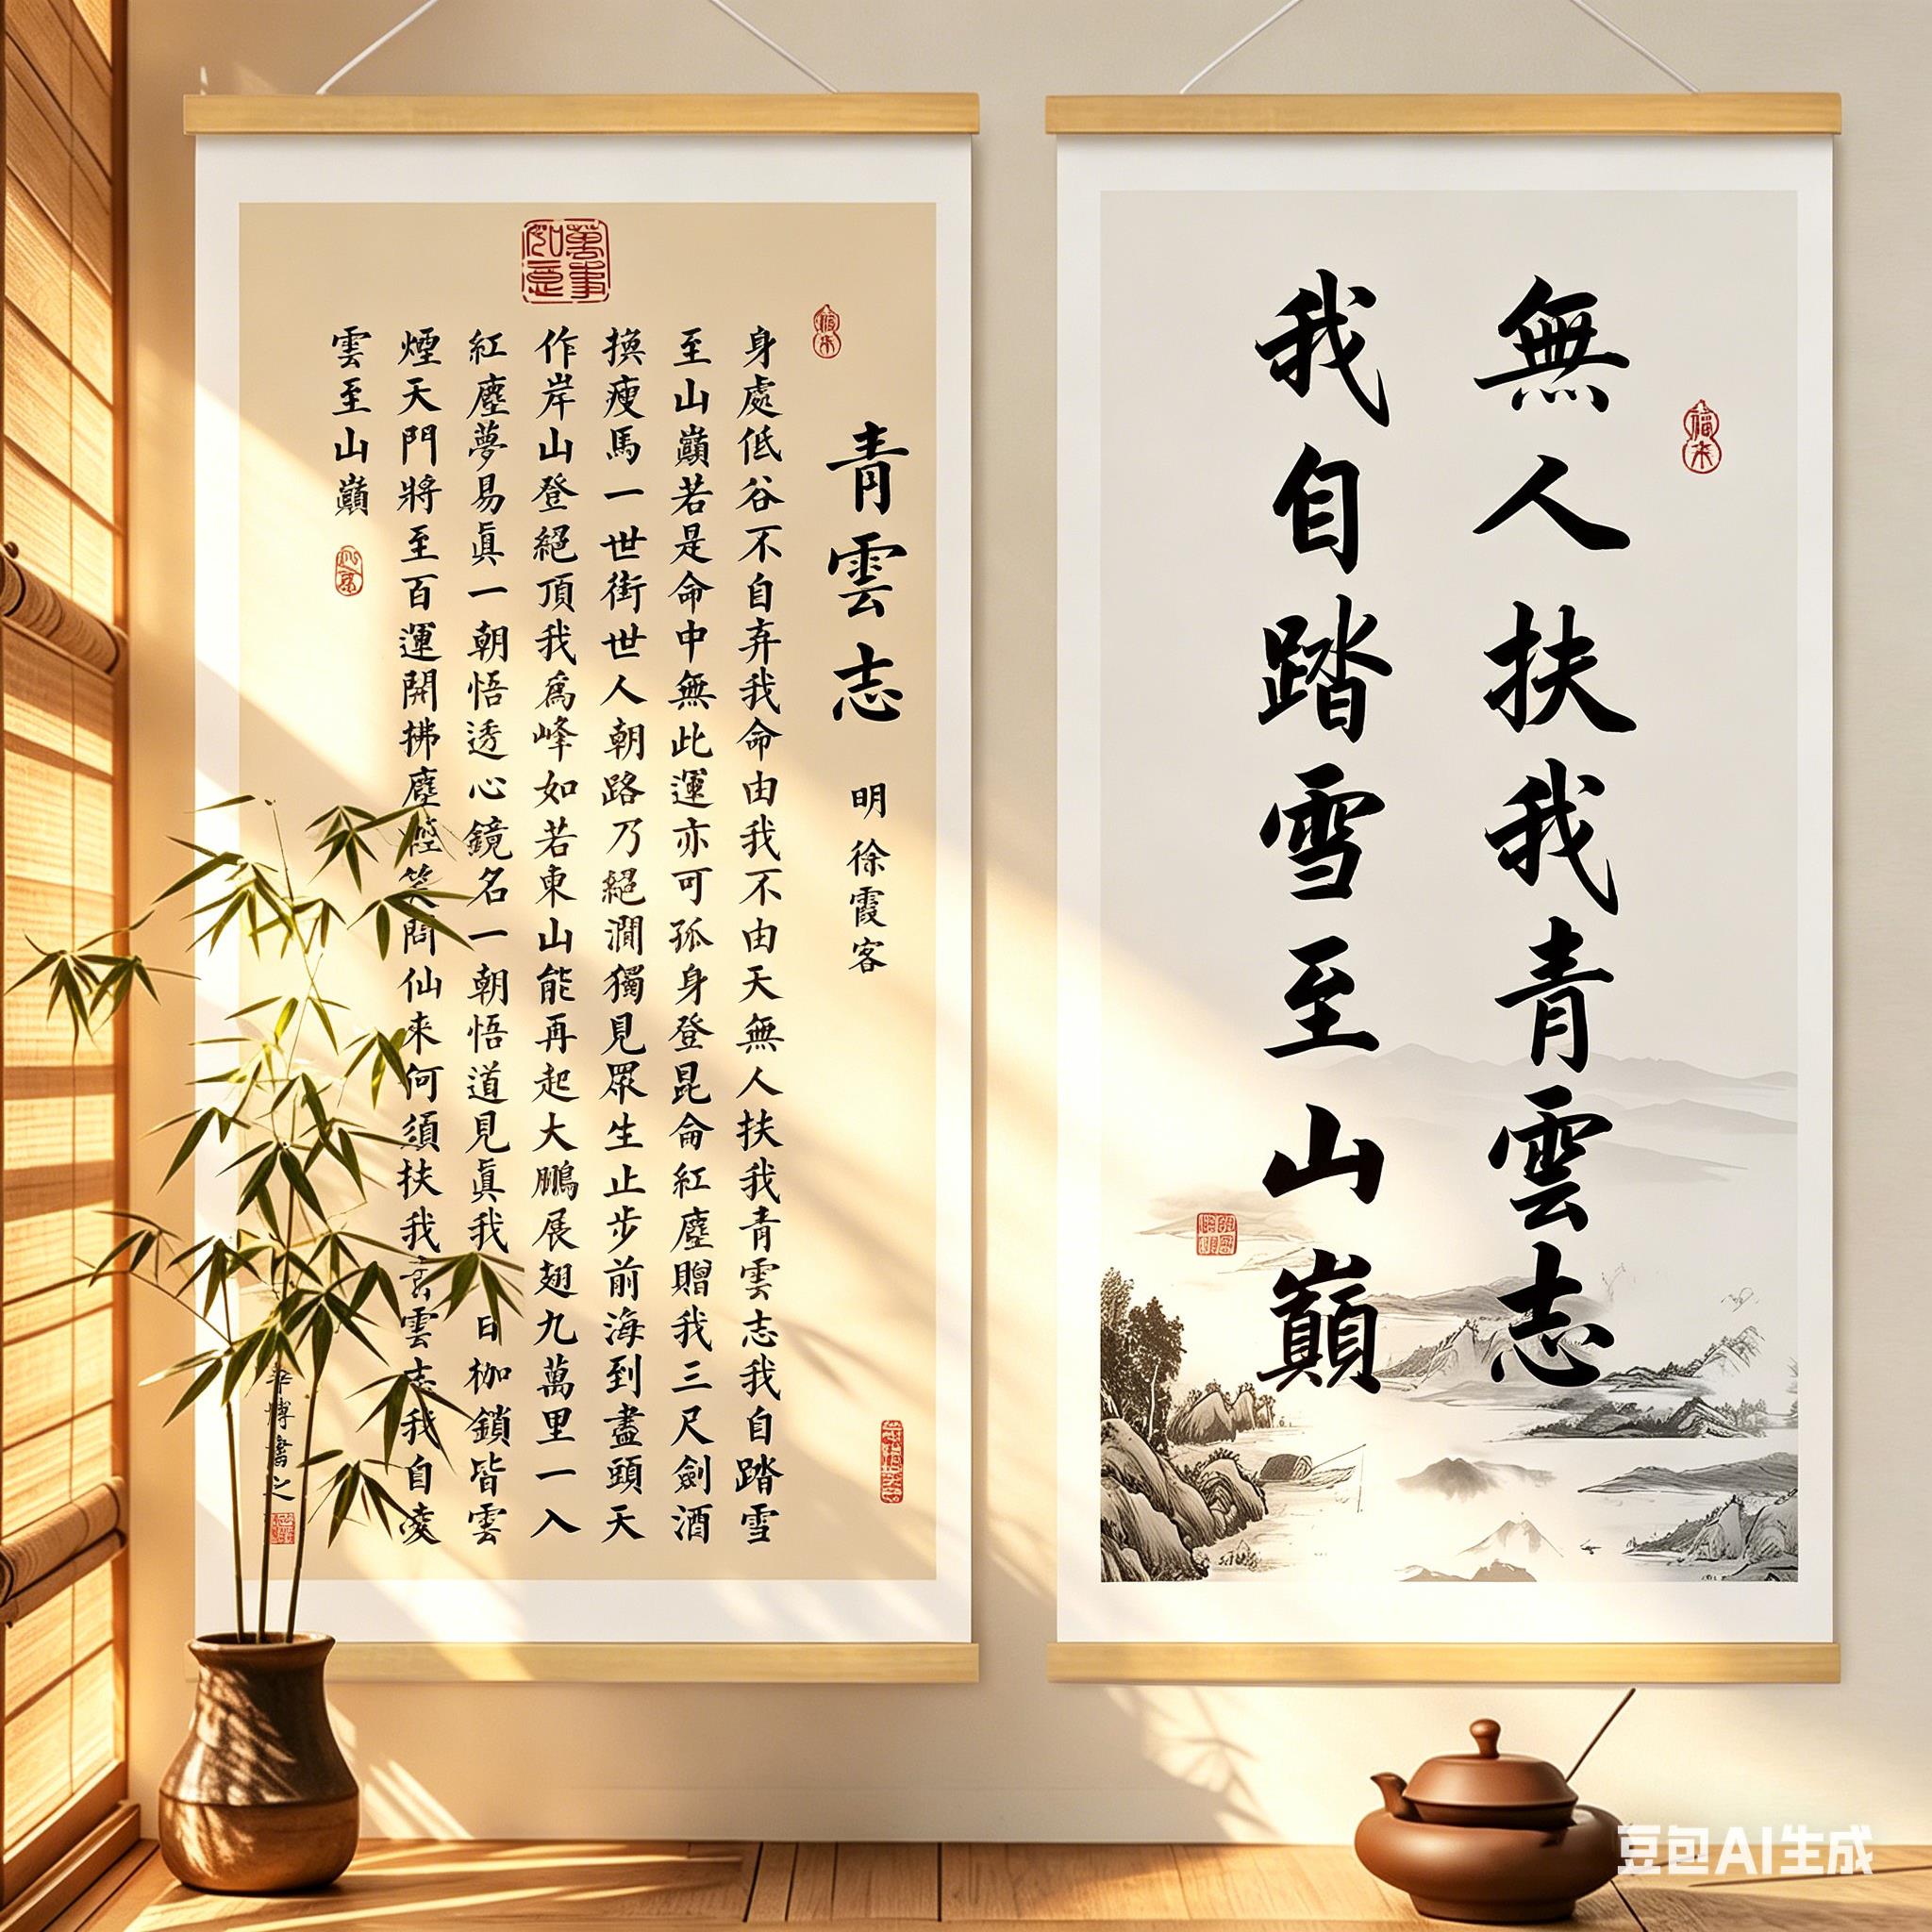 萬事如意
青雲志 明 徐霞客
身處低谷不自弃我命由我不由天無人扶我青雲志我自踏雪
至山巔若是命中無此運亦可孤身登昆侖紅塵贈我三尺劍酒
換瘦馬一世街世人朝路乃絕澗獨見眾生止步前海到盡頭天
作岸山登絕頂我爲峰如若東山能再起大鵬展翅九萬里一入
紅塵夢易眞一朝悟透心鏡名一朝悟道見眞我日枷鎖皆雲
煙天門將至百運開拂塵輕笑問仙來何須扶我青雲志我自凌
雲至山巔
書之
無人扶我青雲志
我自踏雪至山巔
豆包AI生成